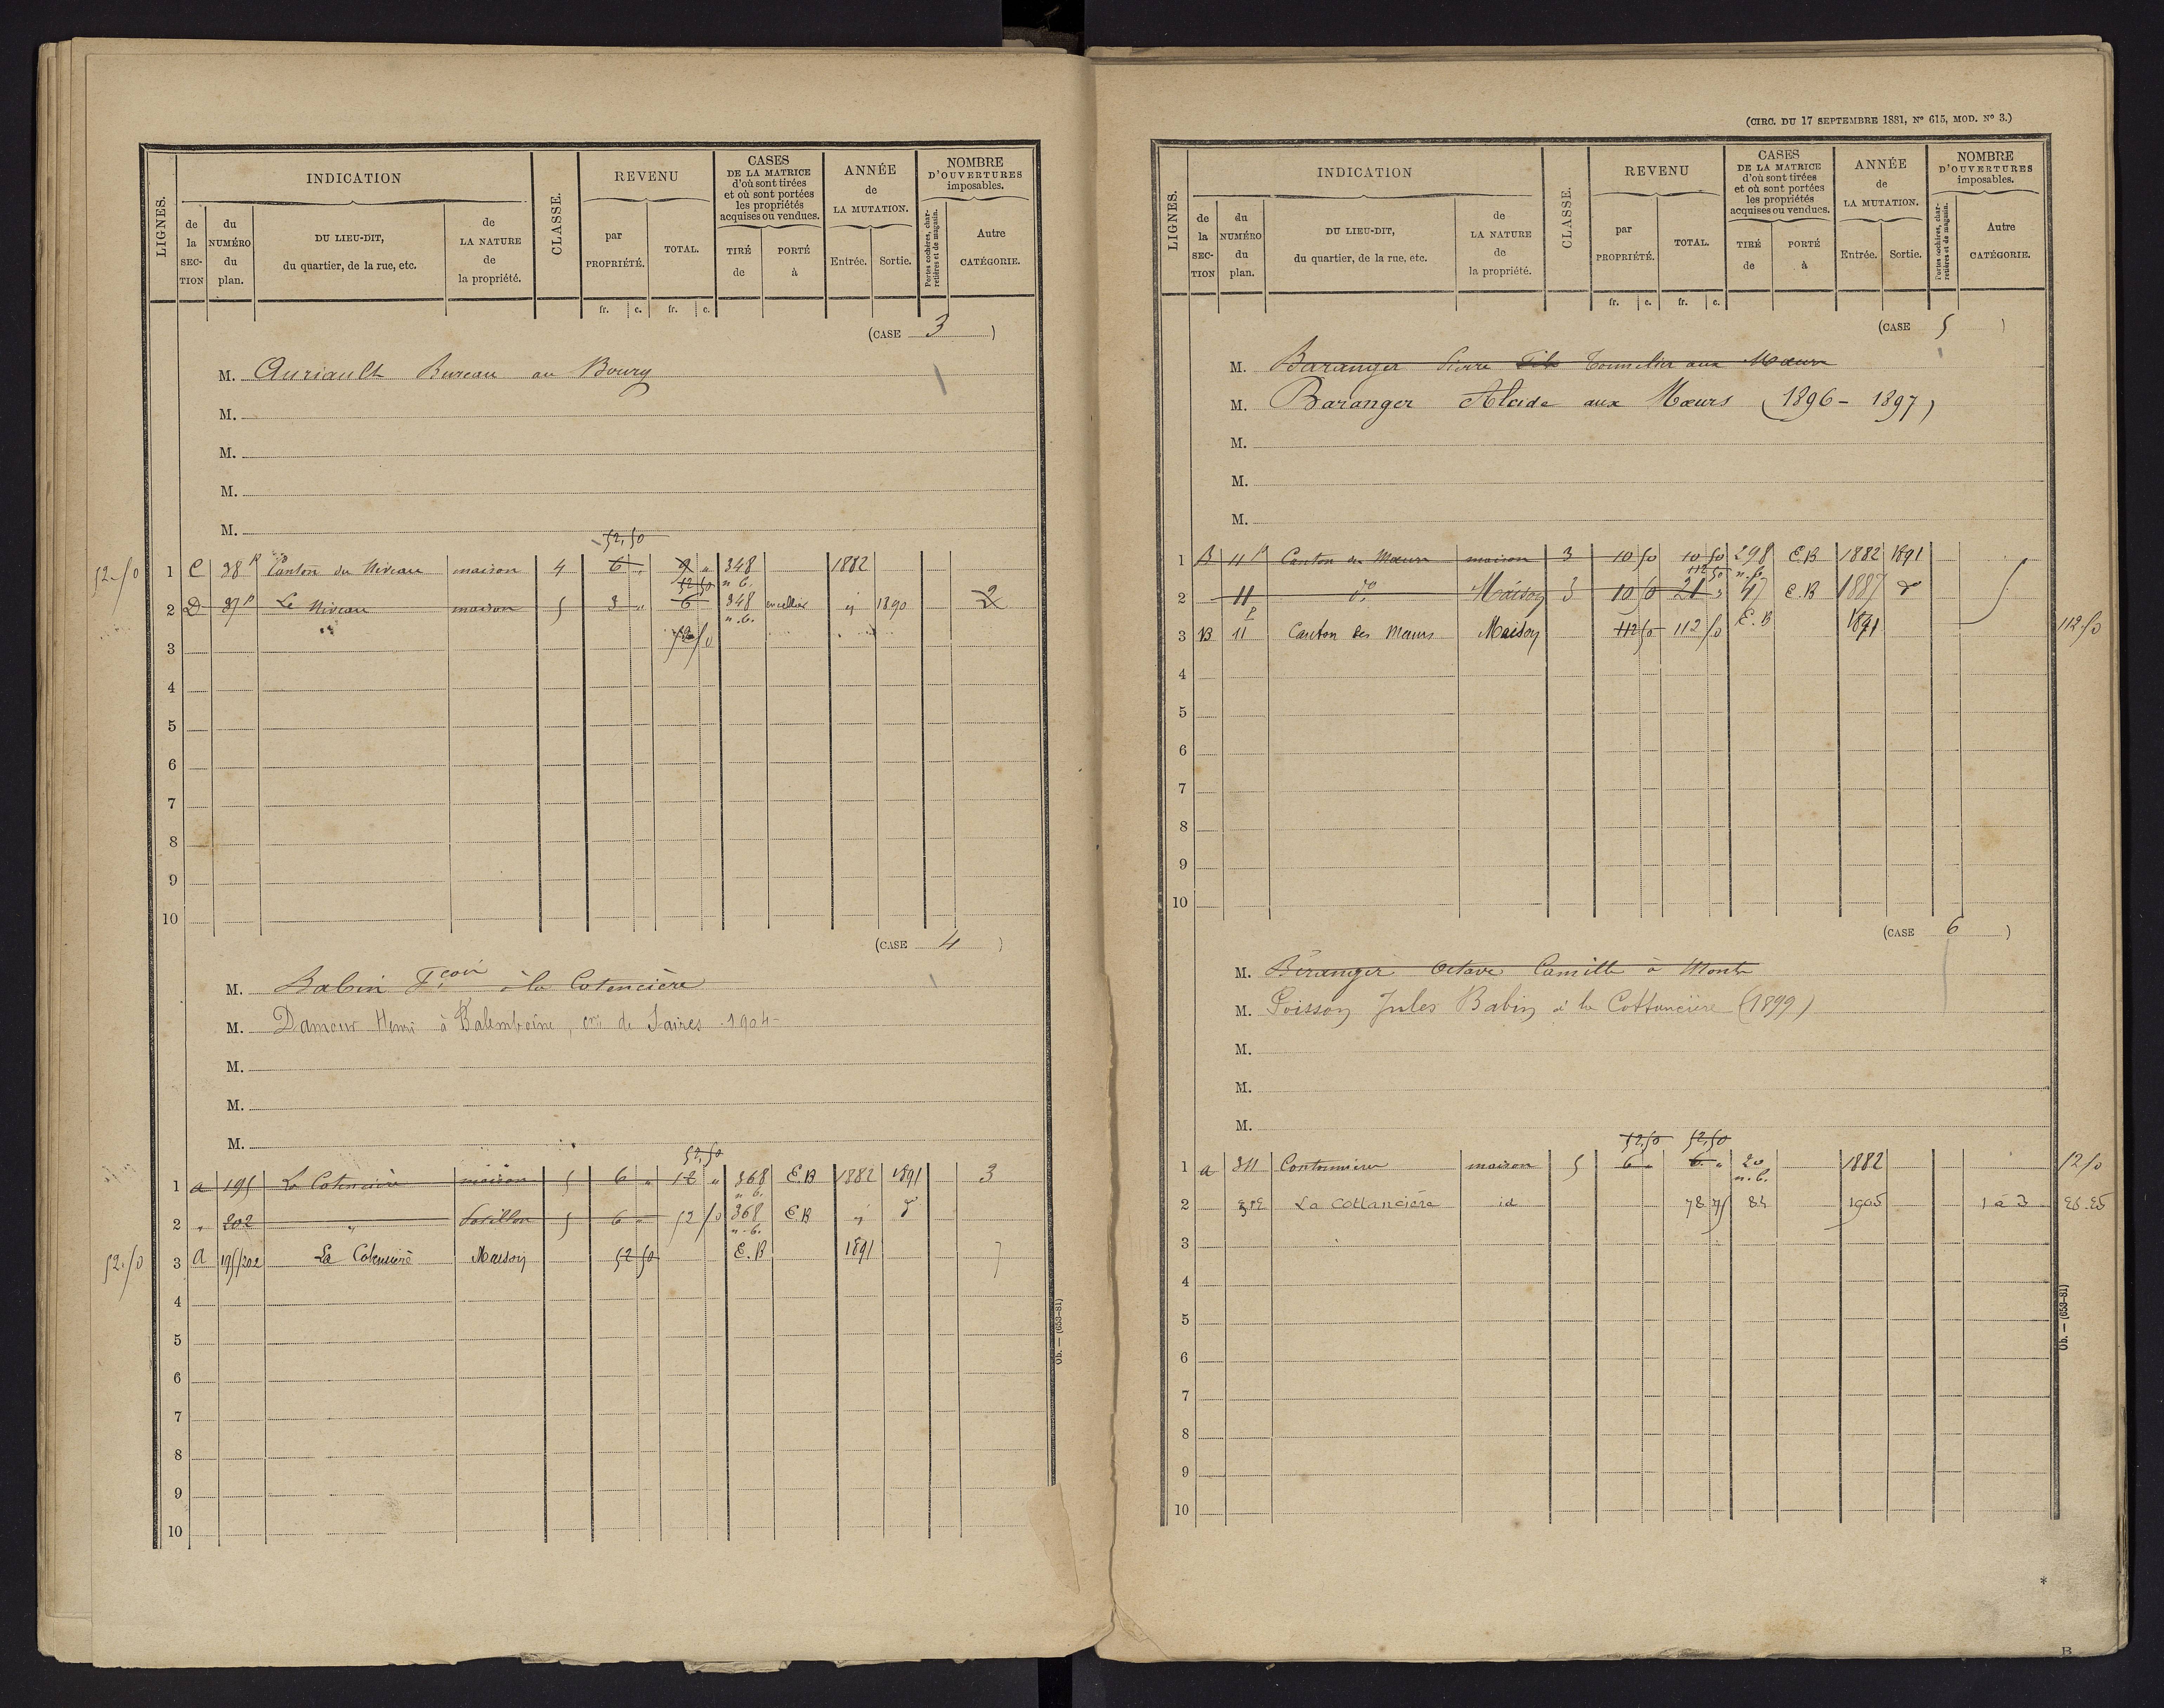 LIGNES.
INDICATION
de la SECTION
du NUMÉRO du plan.
DU LIEU-DIT, du quartier, de la rue, etc.
de LA NATURE de la propriété.
CLASSE.
REVENU
par PROPRIÉTÉ.
TOTAL.
CASES DE LA MATRICE d'où sont tirées et où sont portées les propriétés acquises ou vendues.
TIRÉ de
PORTÉ à
ANNÉE de LA MUTATION.
Entrée.
Sortie.
NOMBRE D'OUVERTURES imposables.
Portes cochères, charretières et de magasin.
Autre CATÉGORIE.
fr. c. fr. c.
(CASE 3)
M. Auriault Bureau au Bourg
M.
M.
M.
M.
52,50
52.50 1 C 38 p Canton du Niveau maison 4 6 " 9 " 348 n.b. 1882
52 50
2 D 37 p Le Niveau maison 5 3 " 6 348 n.b. incellier 1890 2
3 52 50
4
5
6
7
8
9
10
(CASE 4)
M. Babin Fçois à la Cotencière
M. Damour Henri à Balemboine, cne de Saires 1904
M.
M.
M.
52,50
1 a 195 La Cotencière maison 5 6 " 12 " 368 n.b. E.B 1882 1891 3
2 " 202 " 5 6 " 52 50 368 n.b. E.B
52.50 3 A 195/202 La Cotencière Maison 52 50 E.B 1891
4
5
6
7
8
9
10
Ob. — (653-81)
(CIRC. DU 17 SEPTEMBRE 1881, No 615, MOD. No 3.)
LIGNES.
INDICATION
de la SECTION
du NUMÉRO du plan.
DU LIEU-DIT, du quartier, de la rue, etc.
de LA NATURE de la propriété.
CLASSE.
REVENU
par PROPRIÉTÉ.
TOTAL.
CASES DE LA MATRICE d'où sont tirées et où sont portées les propriétés acquises ou vendues.
TIRÉ de
PORTÉ à
ANNÉE de LA MUTATION.
Entrée.
Sortie.
NOMBRE D'OUVERTURES imposables.
Portes cochères, charretières et de magasin.
Autre CATÉGORIE.
fr. c. fr. c.
(CASE 5)
M. Baranger Pierre Fils Tonnelier aux Mœurs
M. Baranger Alcide aux Mœurs (1896 - 1897)
M.
M.
M.
1 B 11 p Canton des Mœurs maison 3 10 50 10 50 298 n.b. E.B 1882 1891
112 50
2 11 do Maison 3 10 50 21 " 47 E.B 1887 do 5
3 B 11 p Canton des Mœurs Maison 112 50 112 50 E.B 1891 112.50
4
5
6
7
8
9
10
(CASE 6)
M. Béranger Octave Camille à Monts
M. Poisson Jules Babin à la Cottancière (1899)
M.
M.
M.
52,50 52,50
1 a 311 maison 5 6 " 6 " 20 n.b. 1882
2 312 La Cottancière id 78 75 82 1905 1 à 3 26.25
3
4
5
6
7
8
9
10
Ob. — (653-81)
*
B